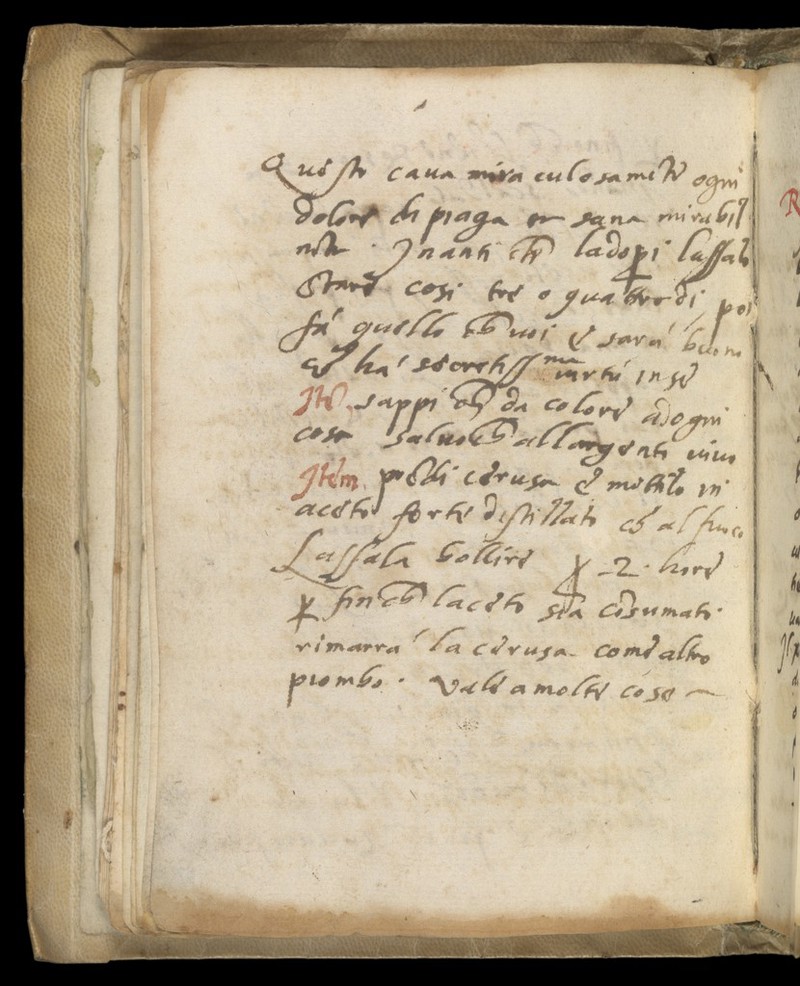 Questo caua miraculosamẽte ogni
dolore di piaga et sana mirabil
mẽte. Jnanti chẽ ladopri lassalo
Stare cosi tre o quattro di, poi
fà quello chẽ uoi e sarà buono
et hà secretiss ma uirtù in se
Jtẽ, sappi chẽ da colore adogni
cosa saluo chẽ allargento uiuo
Jtem. prẽdi cerusa e mettilo in
aceto forte distillato al fuoco
Lassala bollire ꝑ .2. hore
ꝑ fin chẽ laceto sia cõsumato.
rimarrà la cerusa come altro
piombo. Vale a molte cose
R